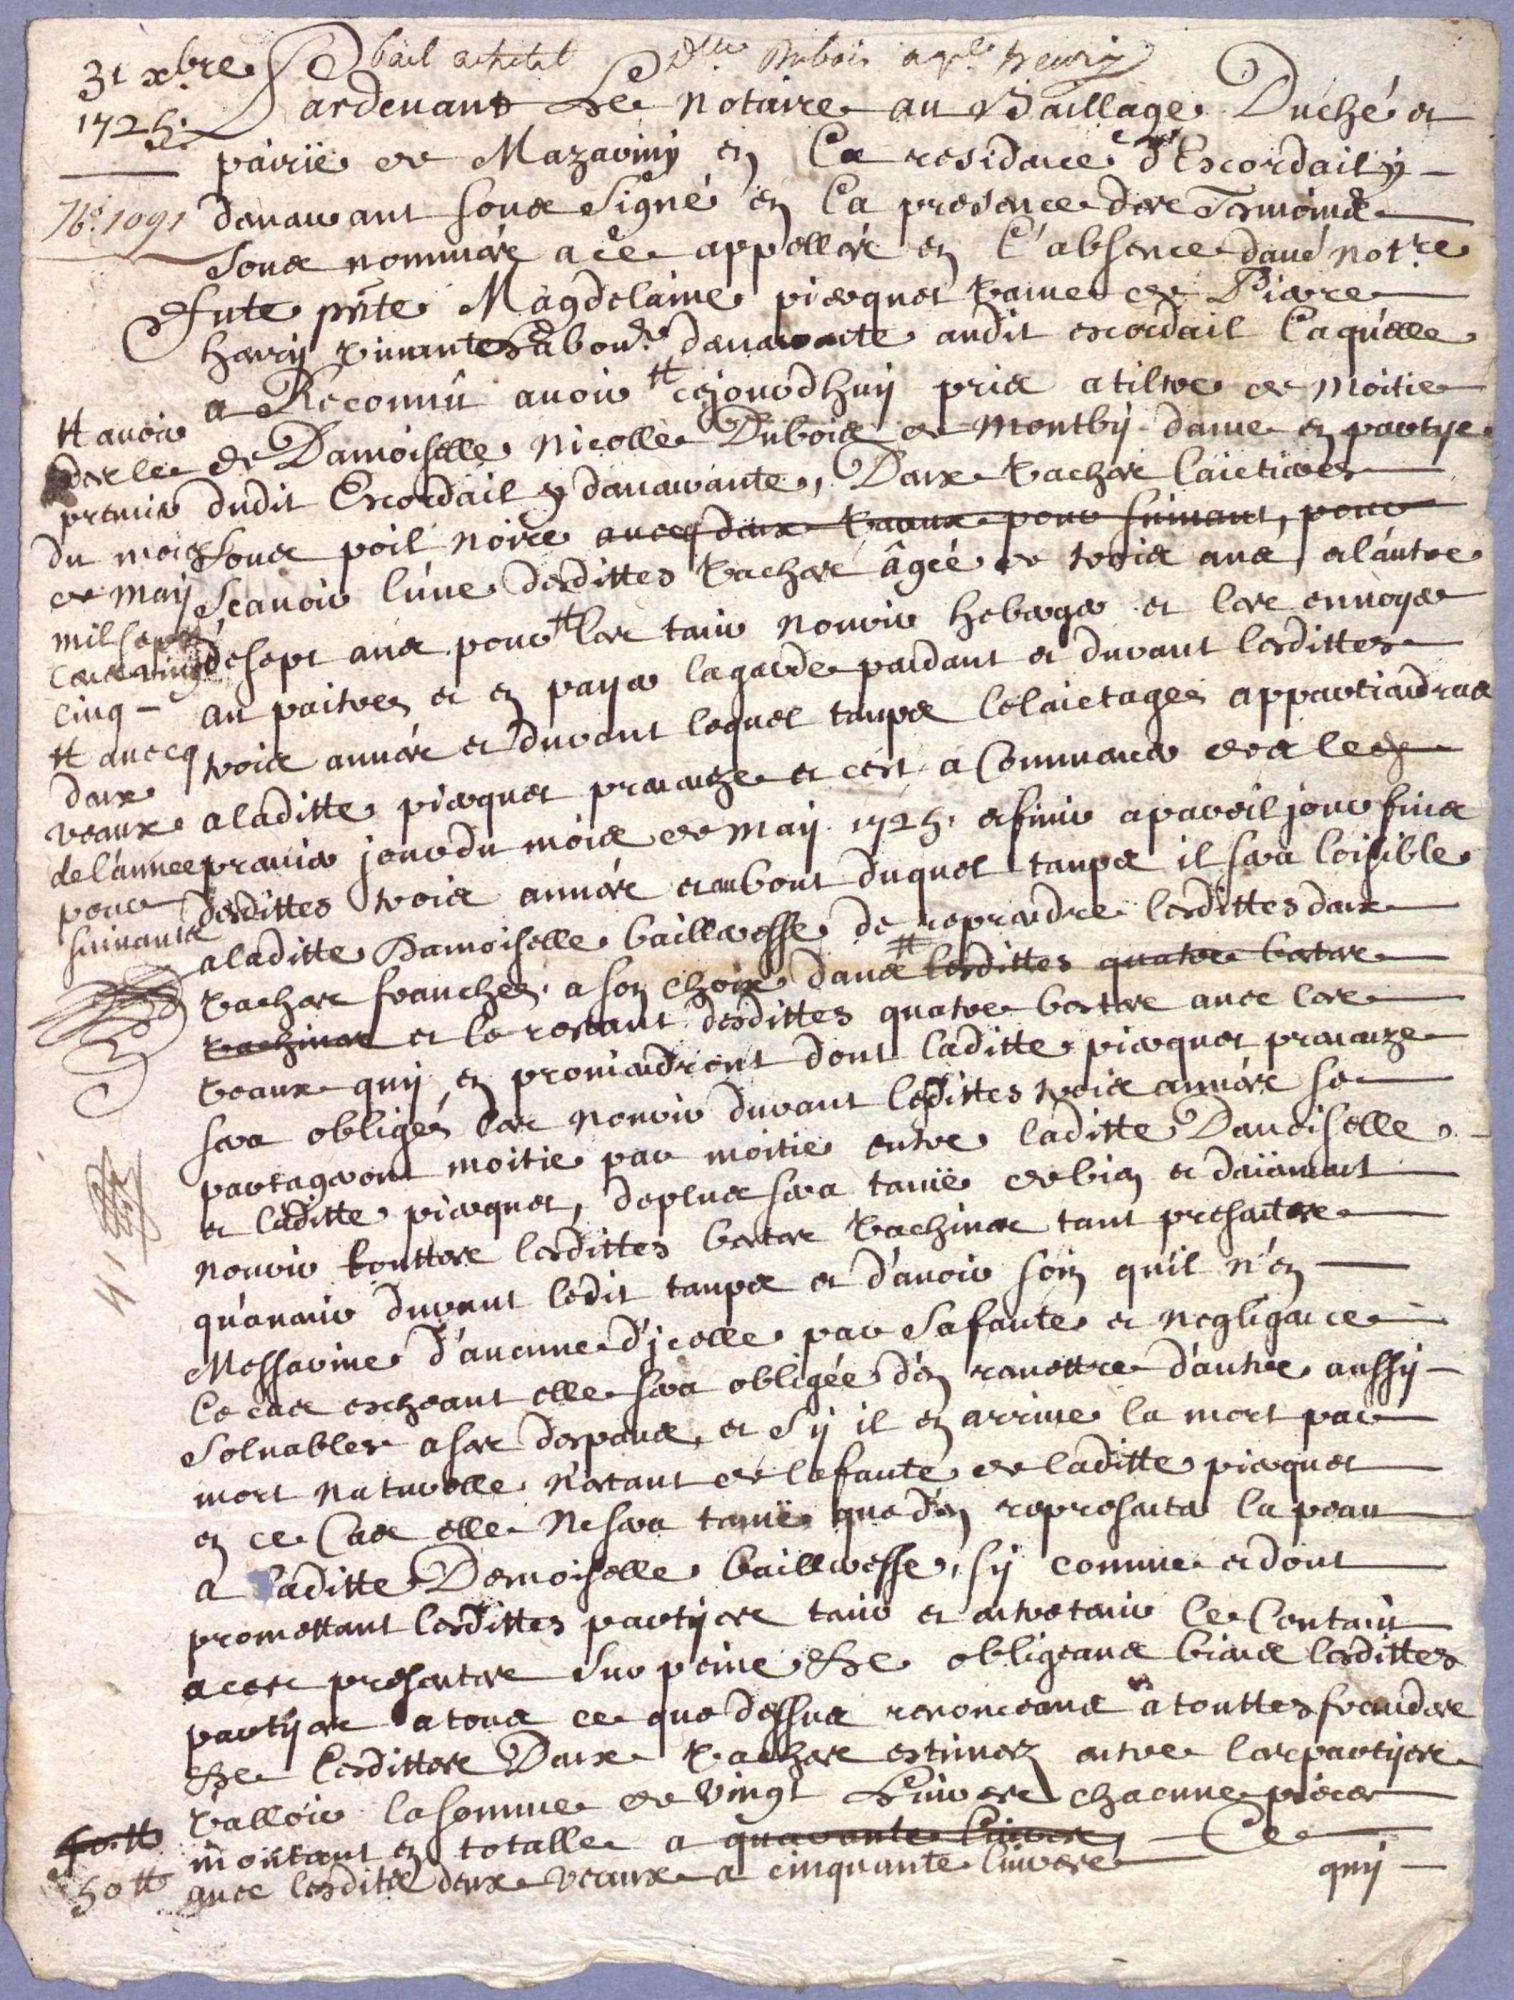 31 xbre
1725.
No. 1091
bail a chetel Dlle Dubois a
Pardevant Le notaire au Baillage Duché et
pairie de Mazariny en La residance d'Escordail y
demeurant sous signé en la presence des Tesmoins
sous nommés a ce appellés en l'absence daue' notre
fute pnte Magdelaine pierquet vefue de Pierre
henry viuante Labour. demeurante audit escordail Laquelle
a Reconnû auoir # cejourdhuy pris a tiltre de moitie
de Damoiselle Nicolle Dubois de Montby dame en partye
dudit Escordail y demeurante, Deux vaches laictieres
sous poil noire auecq deux veaux pour suiuant, pour
Scauoir l'une desdittes vaches âgée de trois ans, et l'autre
de sept ans pour # les tenir nourir heberger et les enuoyer
au paitres et en payer la garde pendant et durant lesdittes
trois années et durant lequel temps le laictages appartiendras
a laditte pierquet preneuse et cest a Commencer des le
premier jour du mois de May 1725. et finir a pareil jour finis
desdittes trois années et au bout duquel temps il sera loisible
a laditte Damoiselle baillresse de reprendre lesdittes deux
vaches franches a son choix dans # lesdittes quatre bestes
vachines et le restant desdittes quatre bestes auec les
veaux quy en prouiendront dont laditte pierquet preneuze
sera obligés les nourir durant lesdittes trois années se
partageront moitie par moitie entre laditte Damoiselle
et laditte pierquet, de plus sera tenüe de bien et deüement
nourir touttes lesdittes bestes vachines tant presentes
qu'auenir durant ledit temps et d'auoir soin qu'il n'en
Messarine d'aucune d'jcelle par sa faute et negligence
le cas escheant elle sera obligée d'en remettre d'autre aussy
soluables a ses despens, et s'y il en arriue la mort par
mort naturelle n'estant de la faute de laditte pierquet
en ce Cas elle Ne sera tenüe que d'en representer la peau
a laditte Demoiselle baillresse, sy comme et dont
promettant lesdittes partyes tenir et entretenir le Contenu
a ces presentes sur peine &c obligeans biens lesdittes
partyes a tous ce que dessus renonceans a touttes fraudes
&c Lesdittes Deux vaches estimez entre les partyes
valloir la somme de vingt Liures chacune pieces
montant en totalle a quarante Liures, Ce
auec lesdits deux veaux a cinquante liures
quy
# auoir
des le
premier
du mois
de May
mil sept
cens vingt
cinq
# auecq
deux
veaux
de l'année
pour
suiuans
40 tt
50 tt